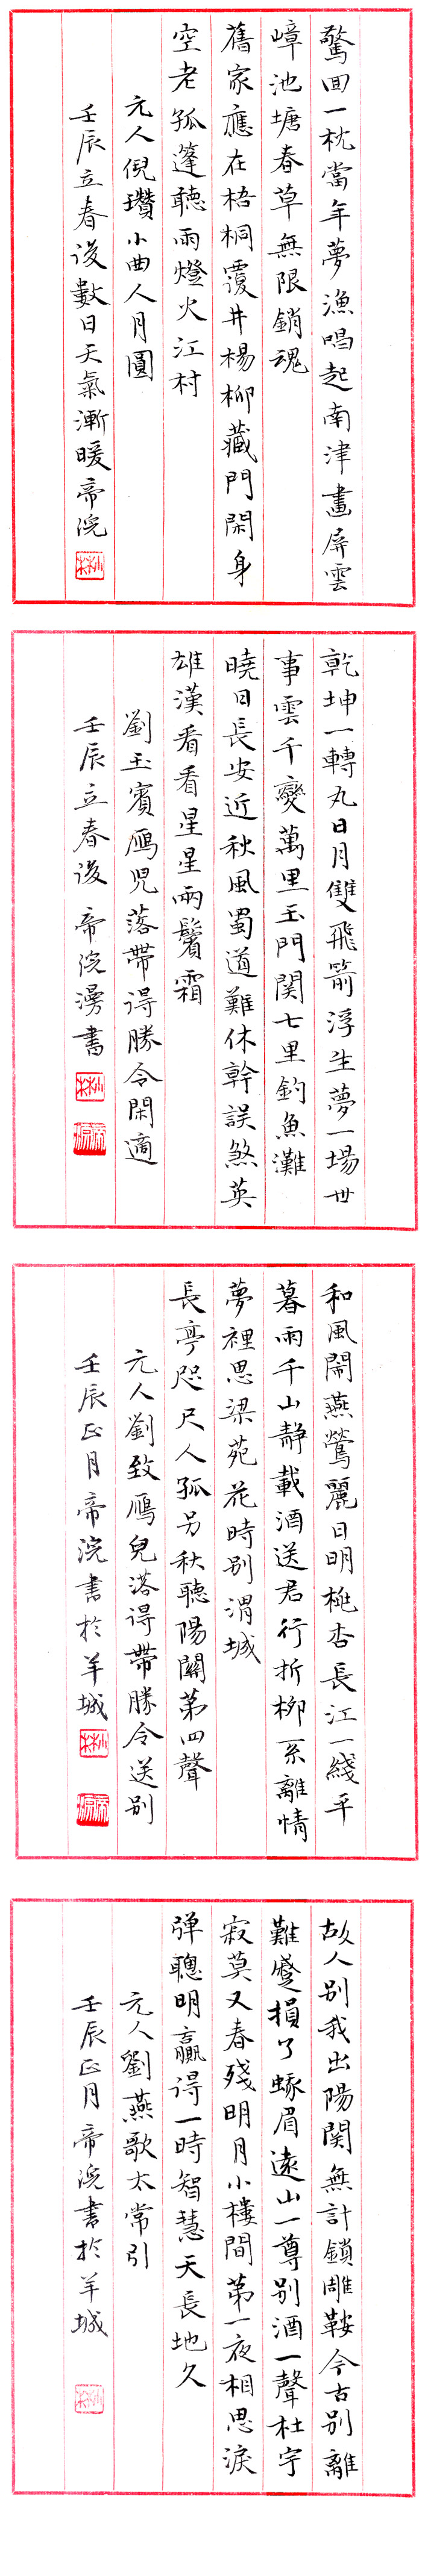 驚回一枕當年夢漁唱起南津畫屏雲
嶂池塘春草無限銷魂
舊家應在梧桐覆井楊柳藏門閑身
空老孤篷聽雨燈火江村
元人倪瓚小曲人月圓
壬辰立春後數日天氣漸暖帝浣
乾坤一轉丸日月雙飛箭浮生夢一場世
事雲千變萬里玉門関七里釣魚灘
曉日長安近秋風蜀道難休幹誤煞英
雄漢看看星星兩鬢霜
劉玉賓鴈児落帶得勝令閑適
壬辰立春後帝浣漫書
和風鬧燕鶯麗日明桃杏長江一綫平
暮雨千山靜載酒送君行折柳系離情
夢裡思梁苑花時别渭城
長亭咫尺人孤另秋聽陽關第四聲
元人劉致鴈兒落得帶勝令送别
壬辰正月帝浣書於羊城
故人别我出陽関無計鎖雕鞍今古别離
難蹙損了蛾眉遠山一尊别酒一聲杜宇
寂莫又春殘明月小樓間第一夜相思淚
弹聰明贏得一時智慧天長地久
元人劉燕歌太常引
壬辰正月帝浣書於羊城